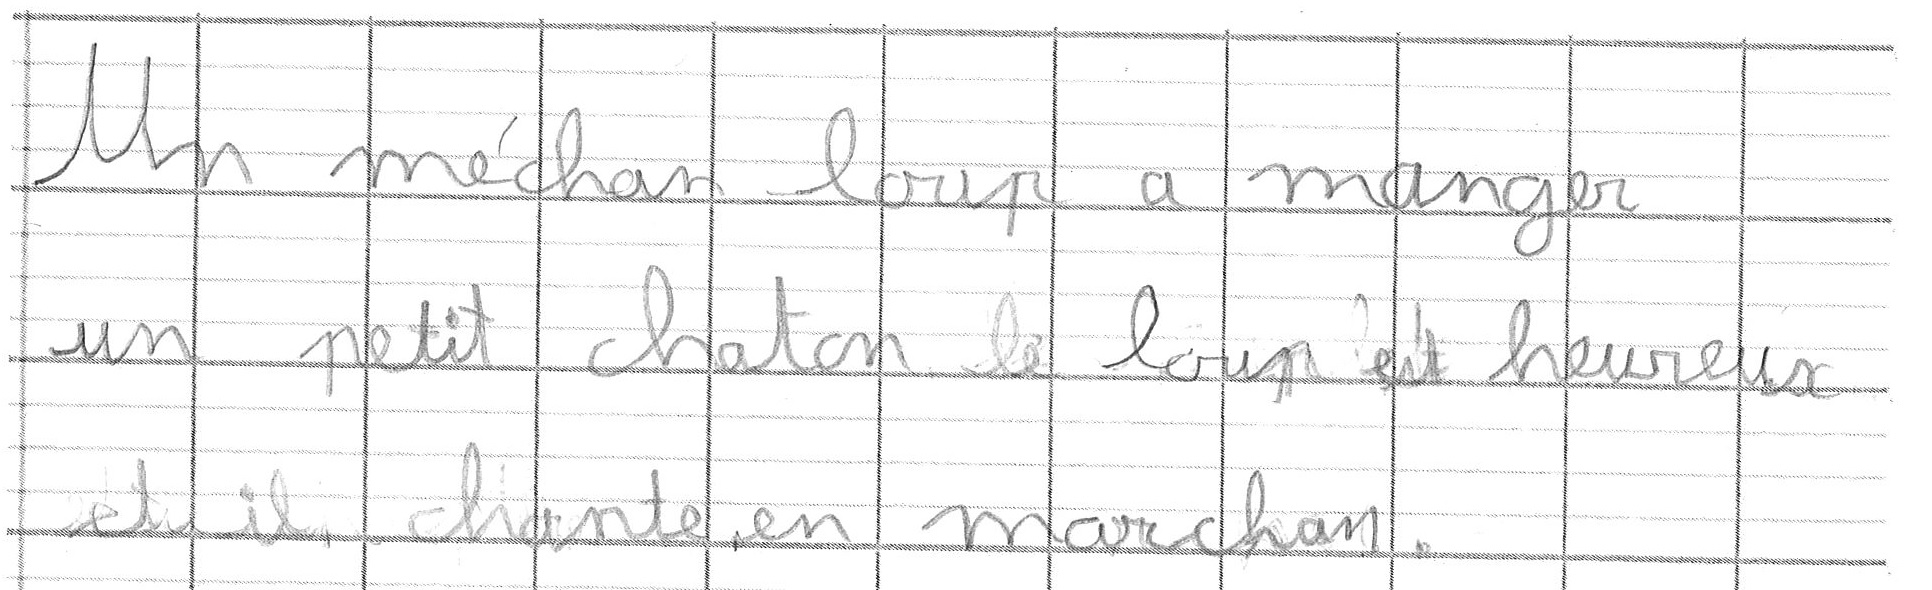 Un méchan loup a manger
un petit chaton le loup est heureux
et il chante en marchan.